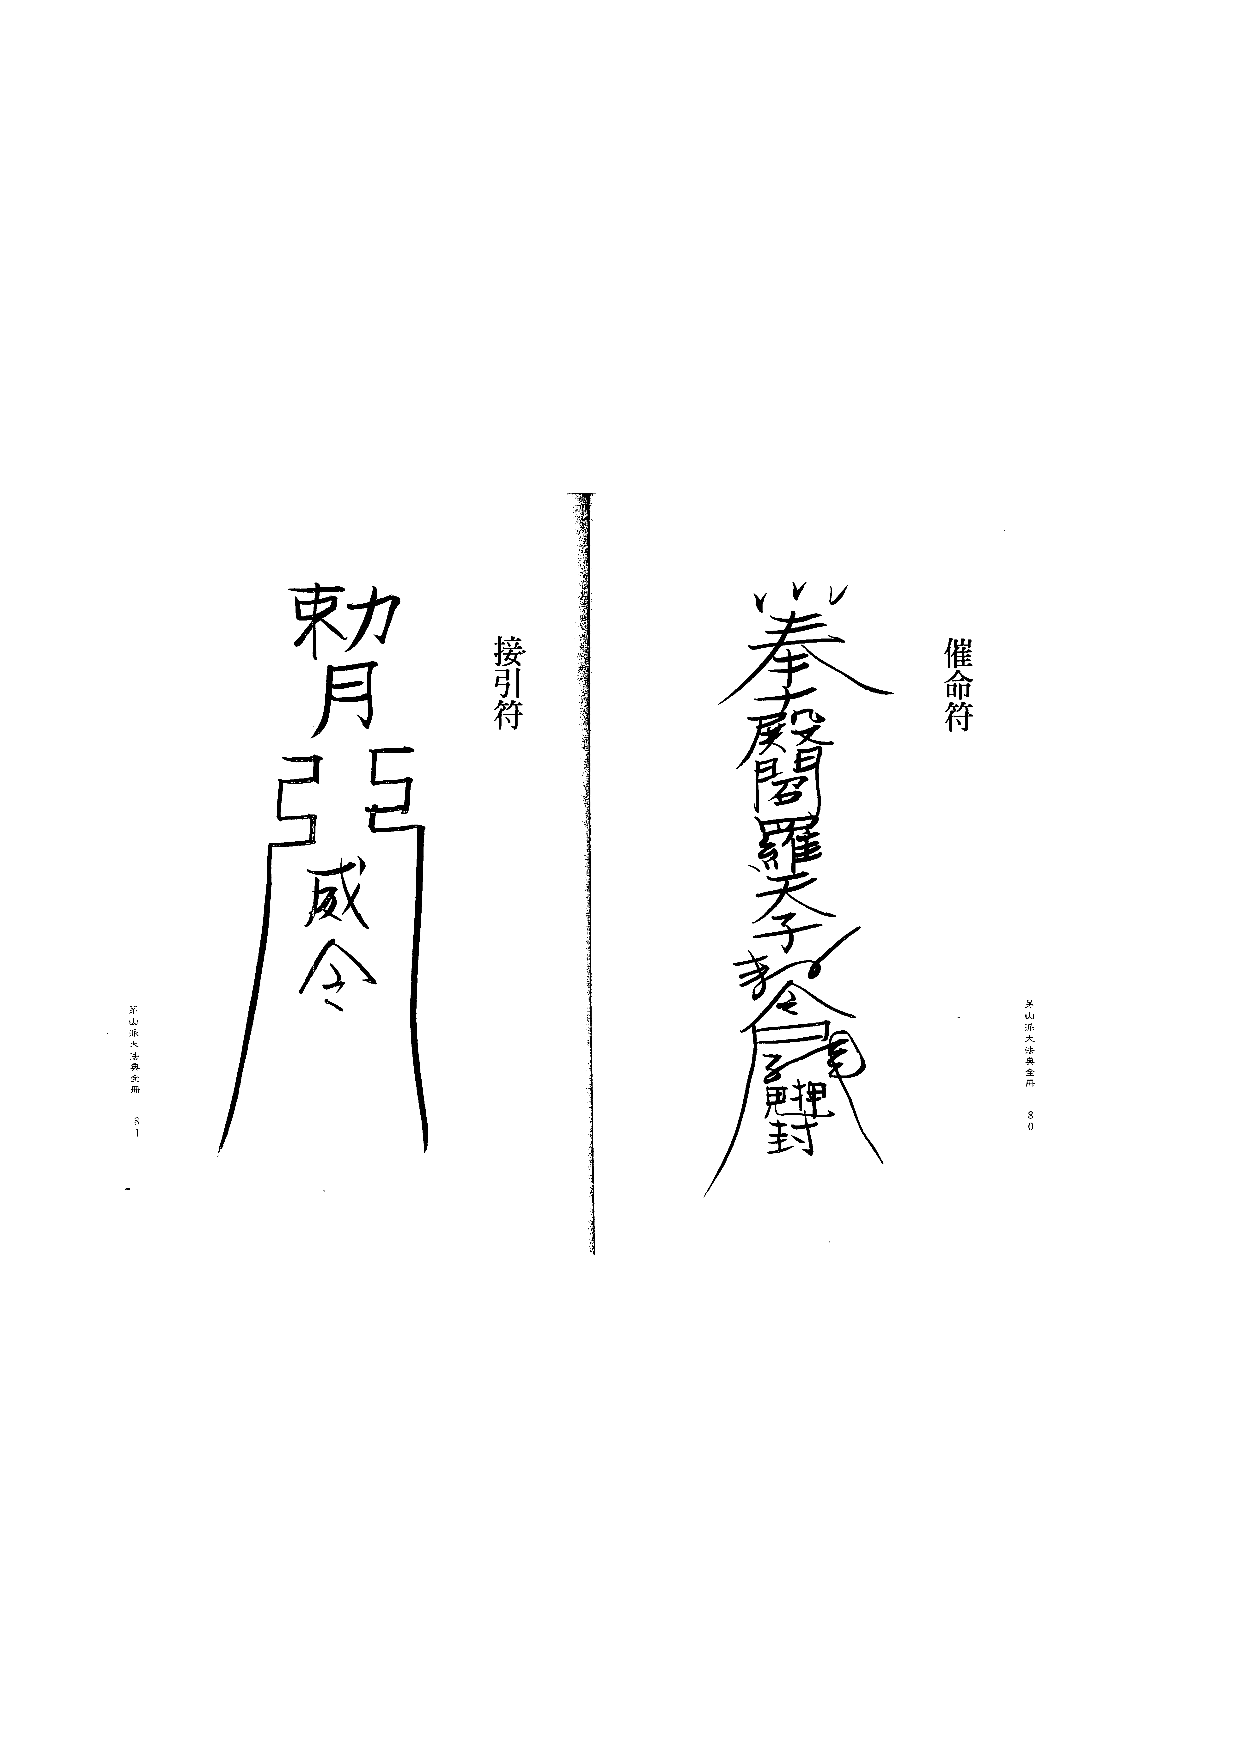 催命符
奉
殿閻羅天子
令
押
封
茅山派大法典全冊 80
接引符
勅月
威令
茅山派大法典全冊 81